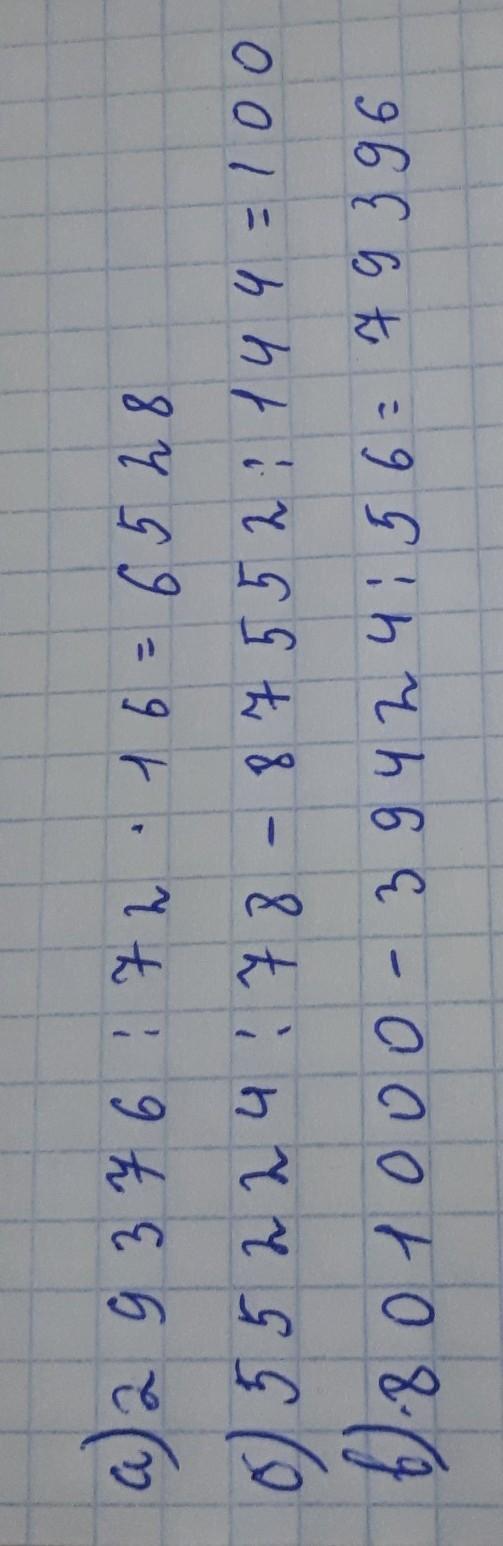 а) 29376 : 72 · 16 = 6528
б) 55224 : 78 - 87552 : 144 = 100
в) 801000 - 39424 : 56 = 79396